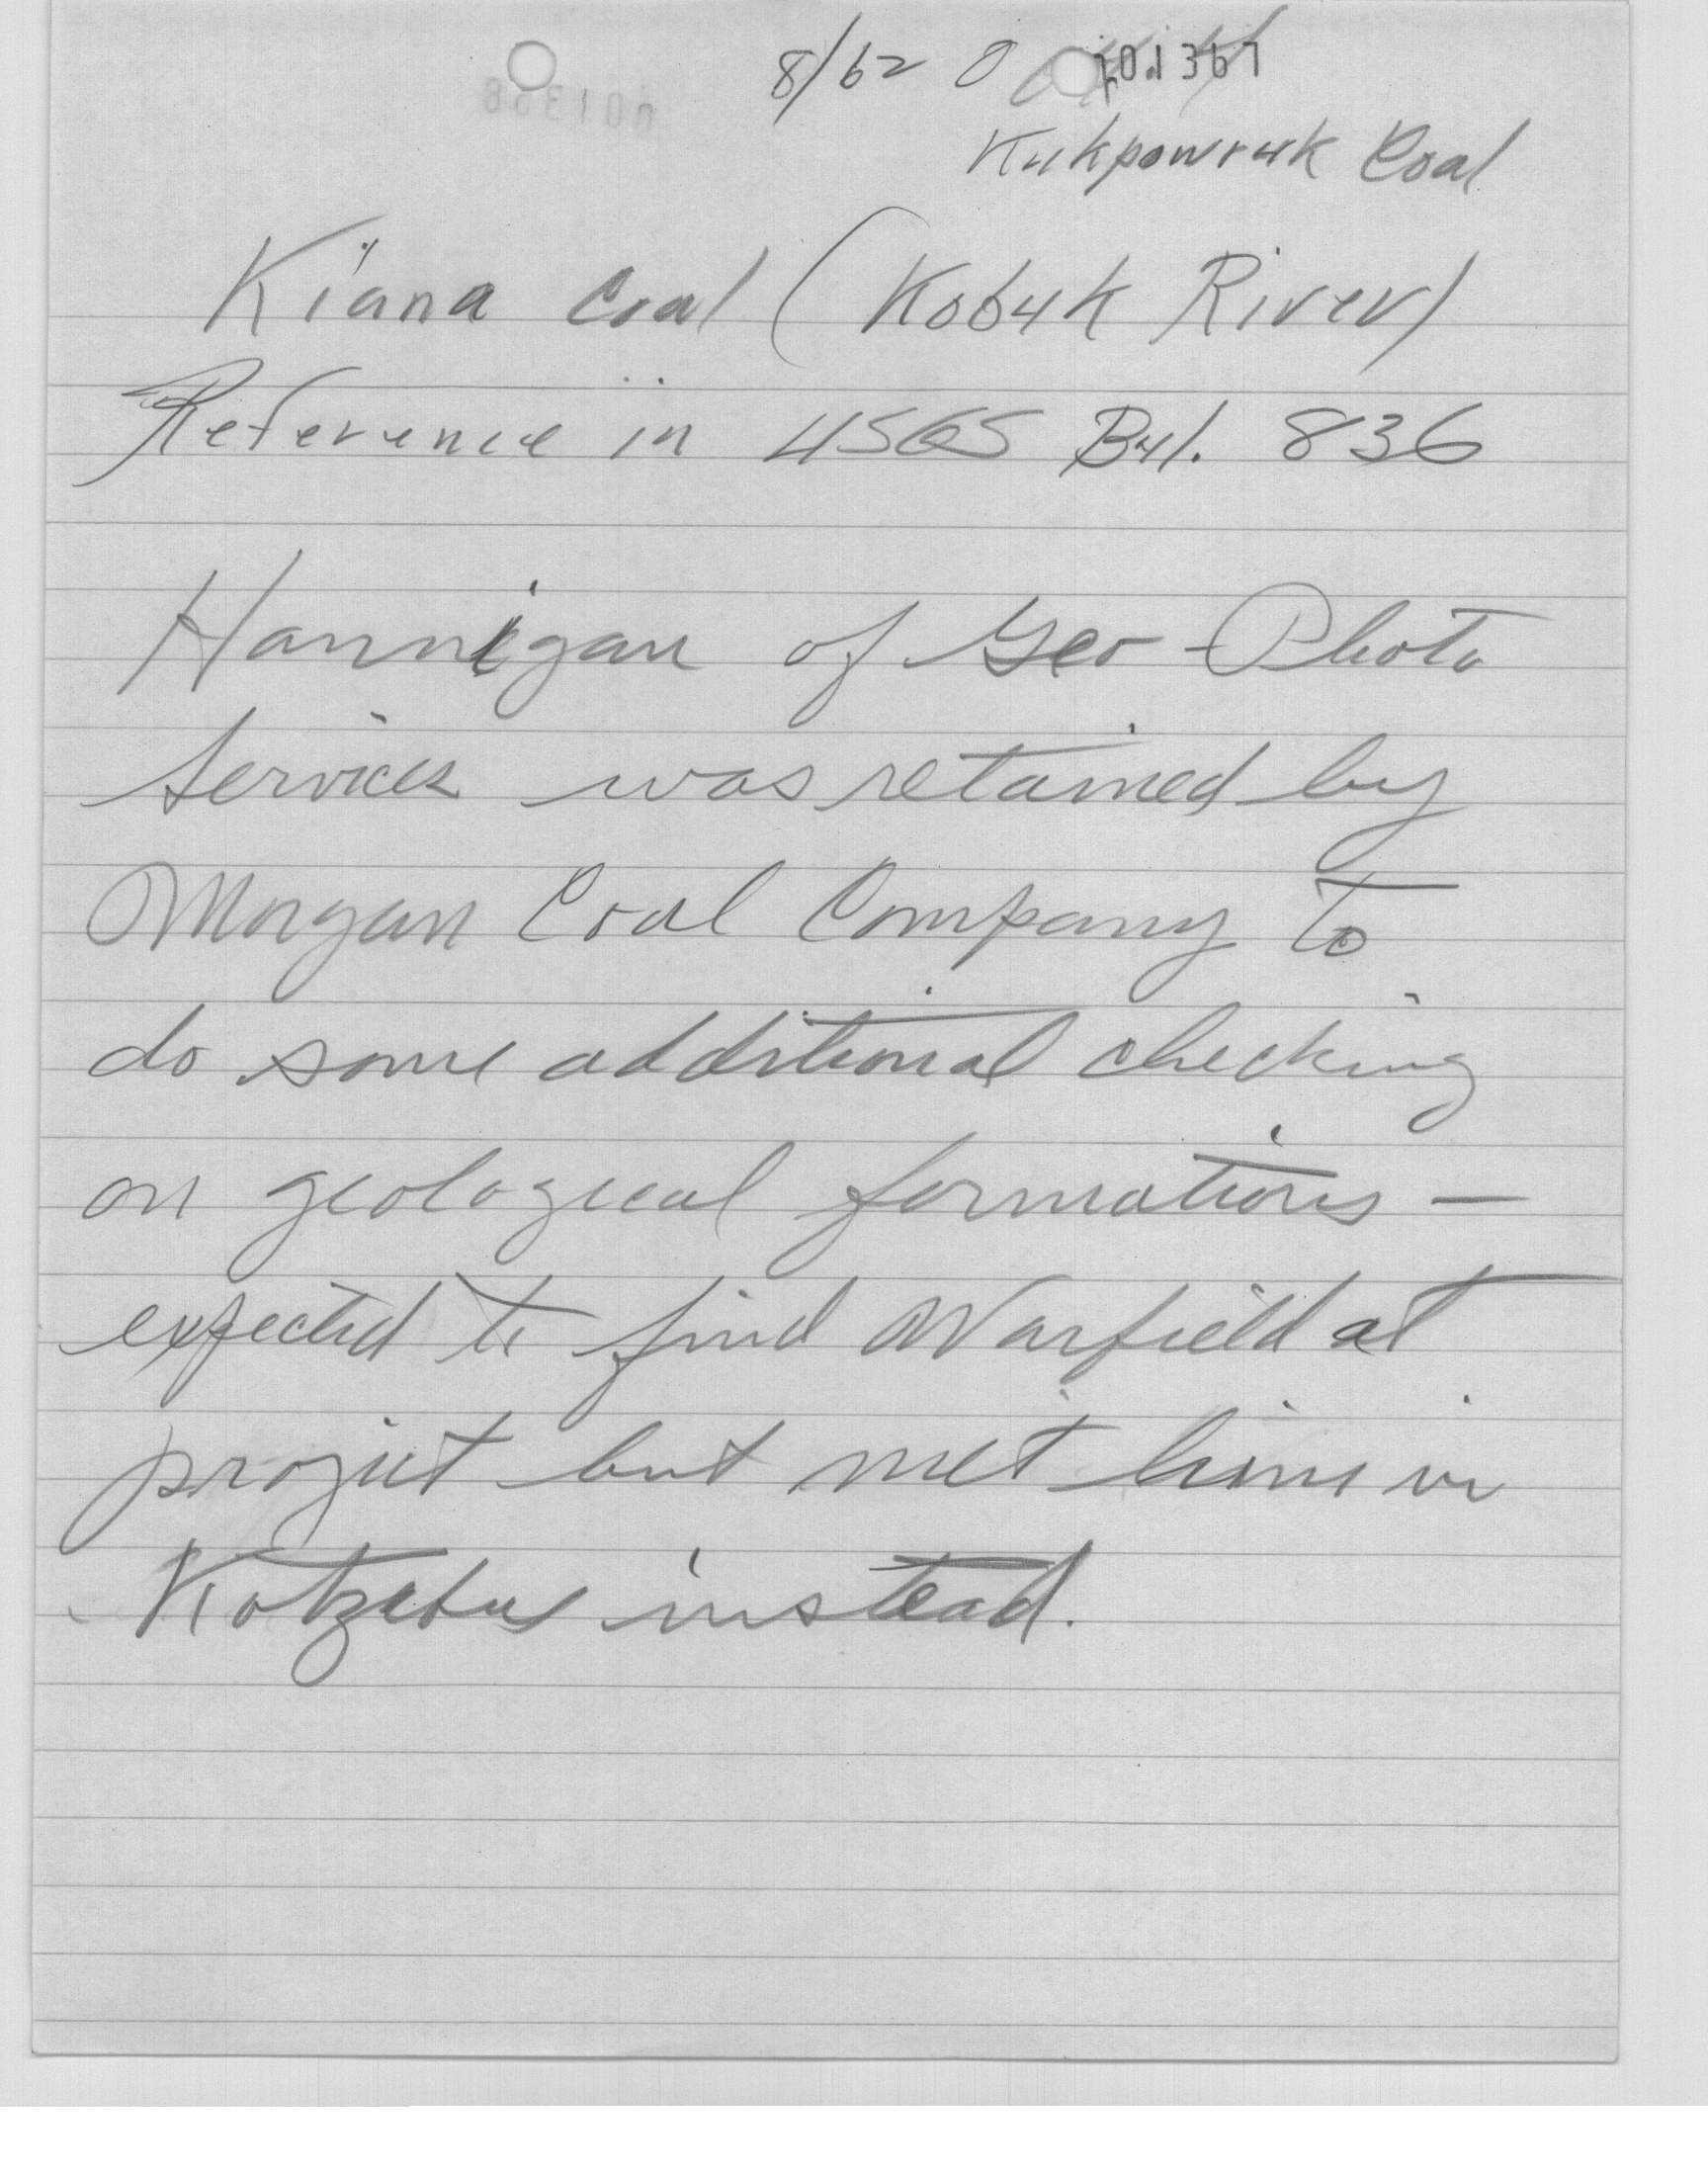 8/62
Kukpowruk Coal
Kiana Coal (Kobuk River)
Reference in USGS Bul. 836
Hannigan of Geo-Photo
Services was retained by
Morgan Coal Company to
do some additional checking
on geological formations —
expected to find Warfield at
project but met him in
Kotzebue instead.